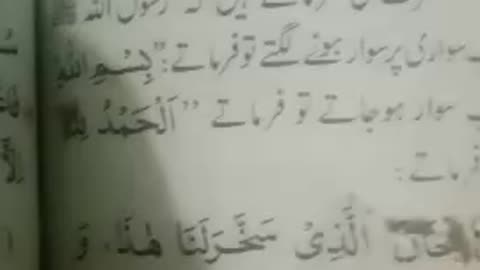 فرماتے ہیں کہ رسول اللہ ﷺ
سواری پر سوار ہونے لگتے تو فرماتے: ”بِسْمِ اللهِ
سوار ہوجاتے تو فرماتے ”اَلْحَمْدُ لِلّٰهِ
فرماتے:
الَّذِيْ سَخَّرَلَنَا هٰذَا، وَ